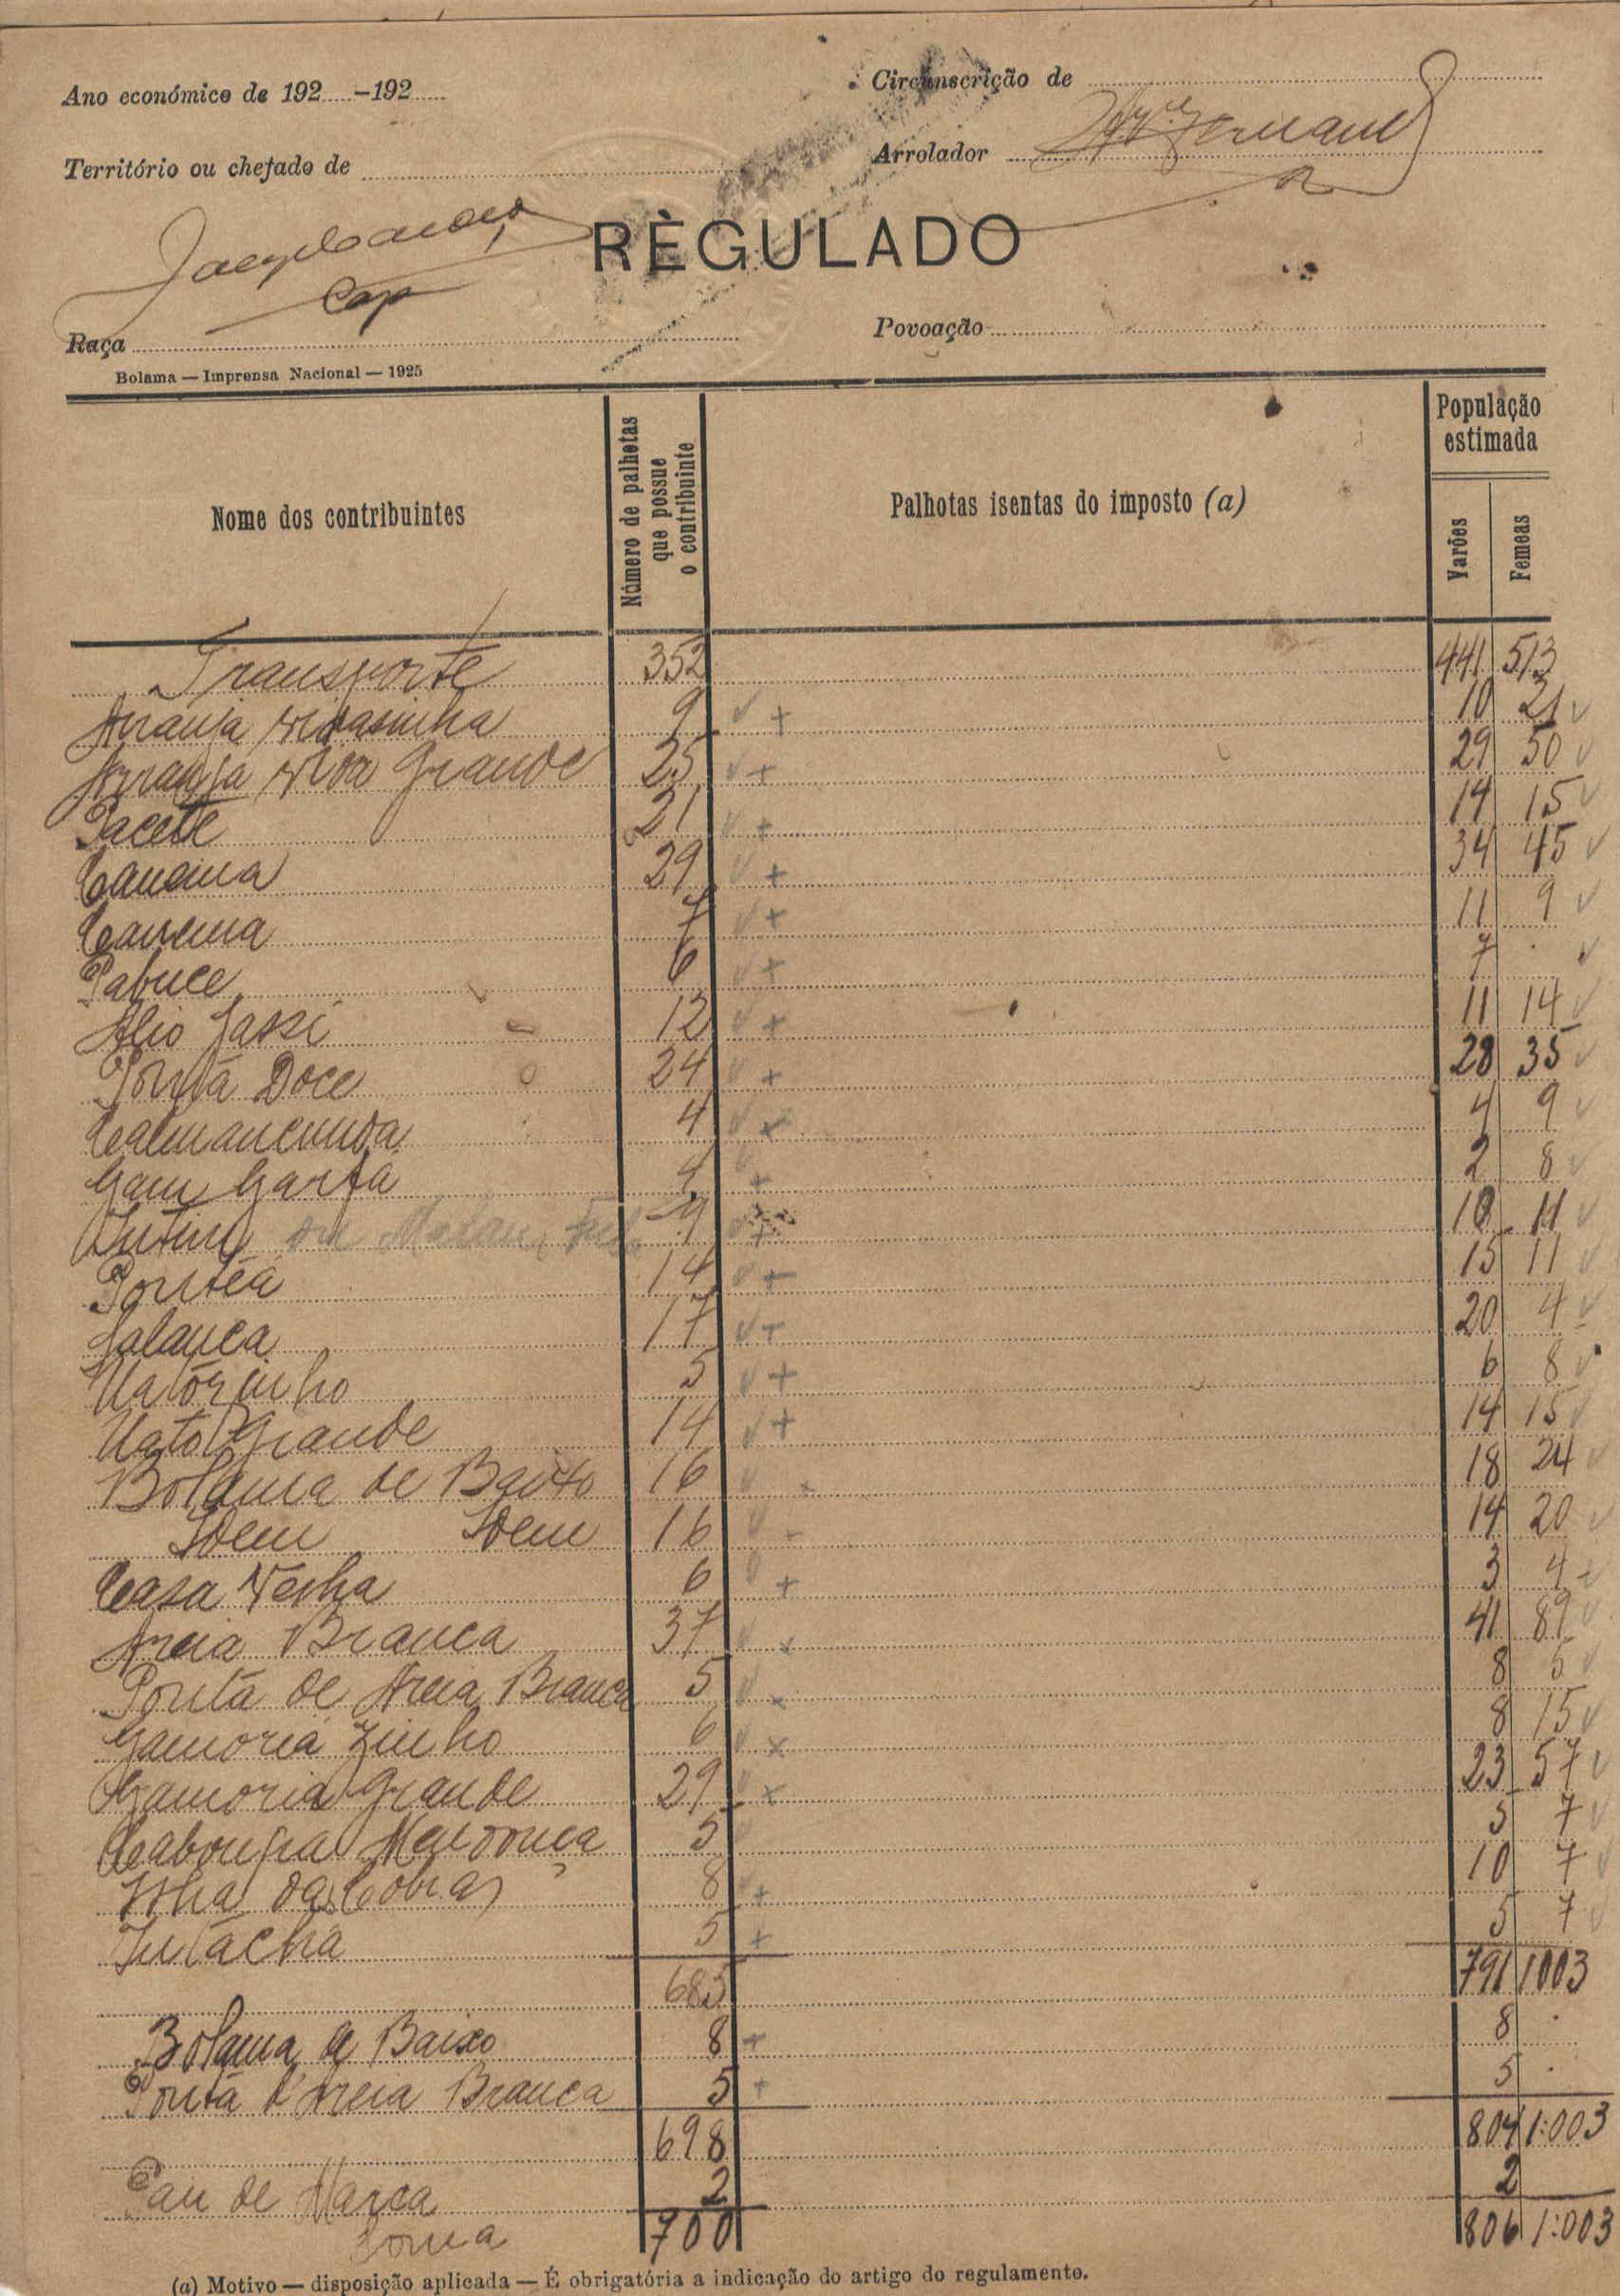 Ano económico de 192.....-192.....
Circunscrição de
Território ou chefado de
Arrolador
RÈGULADO
Cap
Raça
Povoação
Bolama — Imprensa Nacional — 1925
Nome dos contribuintes
Número de palhotas que possue o contribuinte
Palhotas isentas do imposto (a)
População estimada
Varões
Femeas
Transporte 352 441 513
9 + 10 21
Grande 25 + 29 50
21 + 14 15
29 + 34 45
7 + 11 9
6 + 7 .
12 + 11 14
Ponta Doce 24 + 28 35
4 + 4 9
4 + 2 8
ou 9 + 10 11
14 + 15 11
17 + 20 4
Uatórzinho 5 + 6 8
Uato Grande 14 + 14 15
Bolama de Baixo 16 + 18 24
Idem Idem 16 14 20
Casa Velha 6 + 3 4
Areia Branca 37 × 41 89
Ponta de Areia Branca 5 × 8 5
Gamoriazinho 6 × 8 15
Gamoria Grande 29 × 23 57
5 5 7
Ilha das Cobras 8 + 10 7
5 + 5 7
685 791 1003
Bolama de Baixo 8 + 8 .
Ponta d'Areia Branca 5 + 5 .
698 804 1:003
Pau de Marca 2 2
Soma 700 806 1:003
(a) Motivo — disposição aplicada — É obrigatória a indicação do artigo do regulamento.